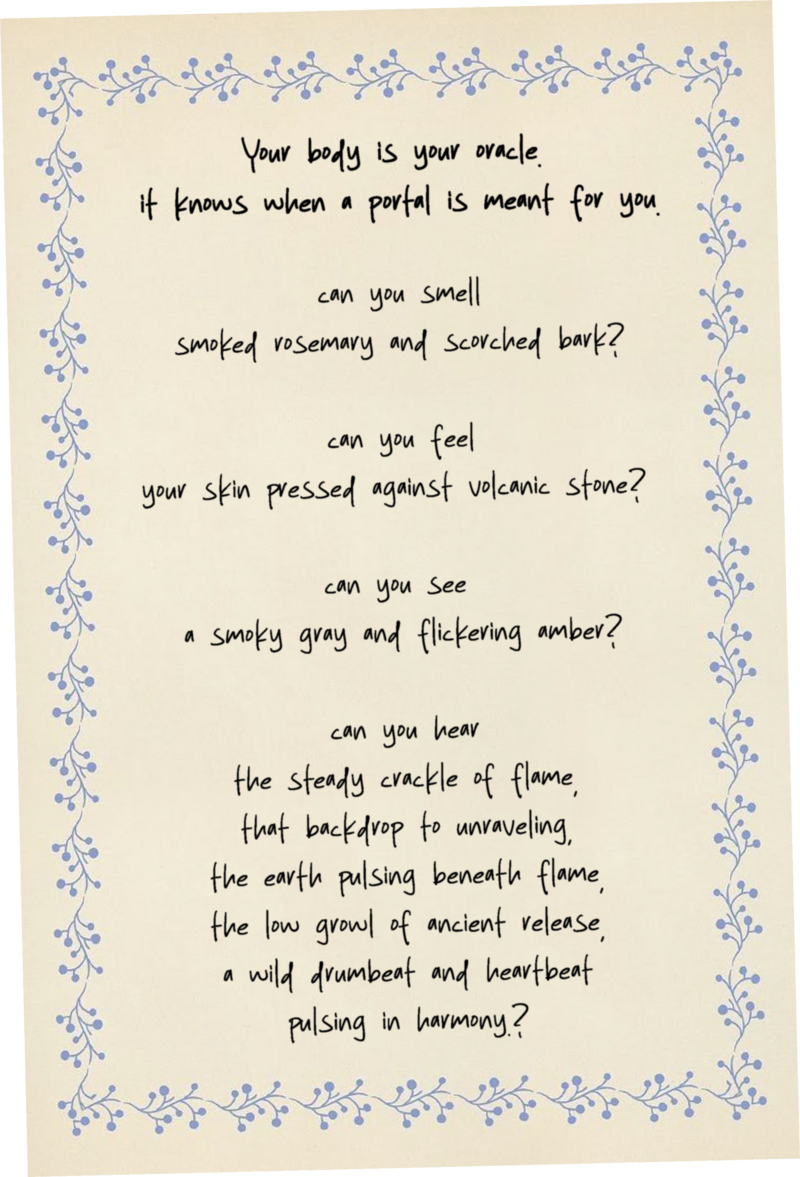 Your body is your oracle.
it knows when a portal is meant for you.
can you smell
smoked rosemary and scorched bark?
can you feel
your skin pressed against volcanic stone?
can you see
a smoky gray and flickering amber?
can you hear
the steady crackle of flame,
that backdrop to unraveling,
the earth pulsing beneath flame,
the low growl of ancient release,
a wild drumbeat and heartbeat
pulsing in harmony.?